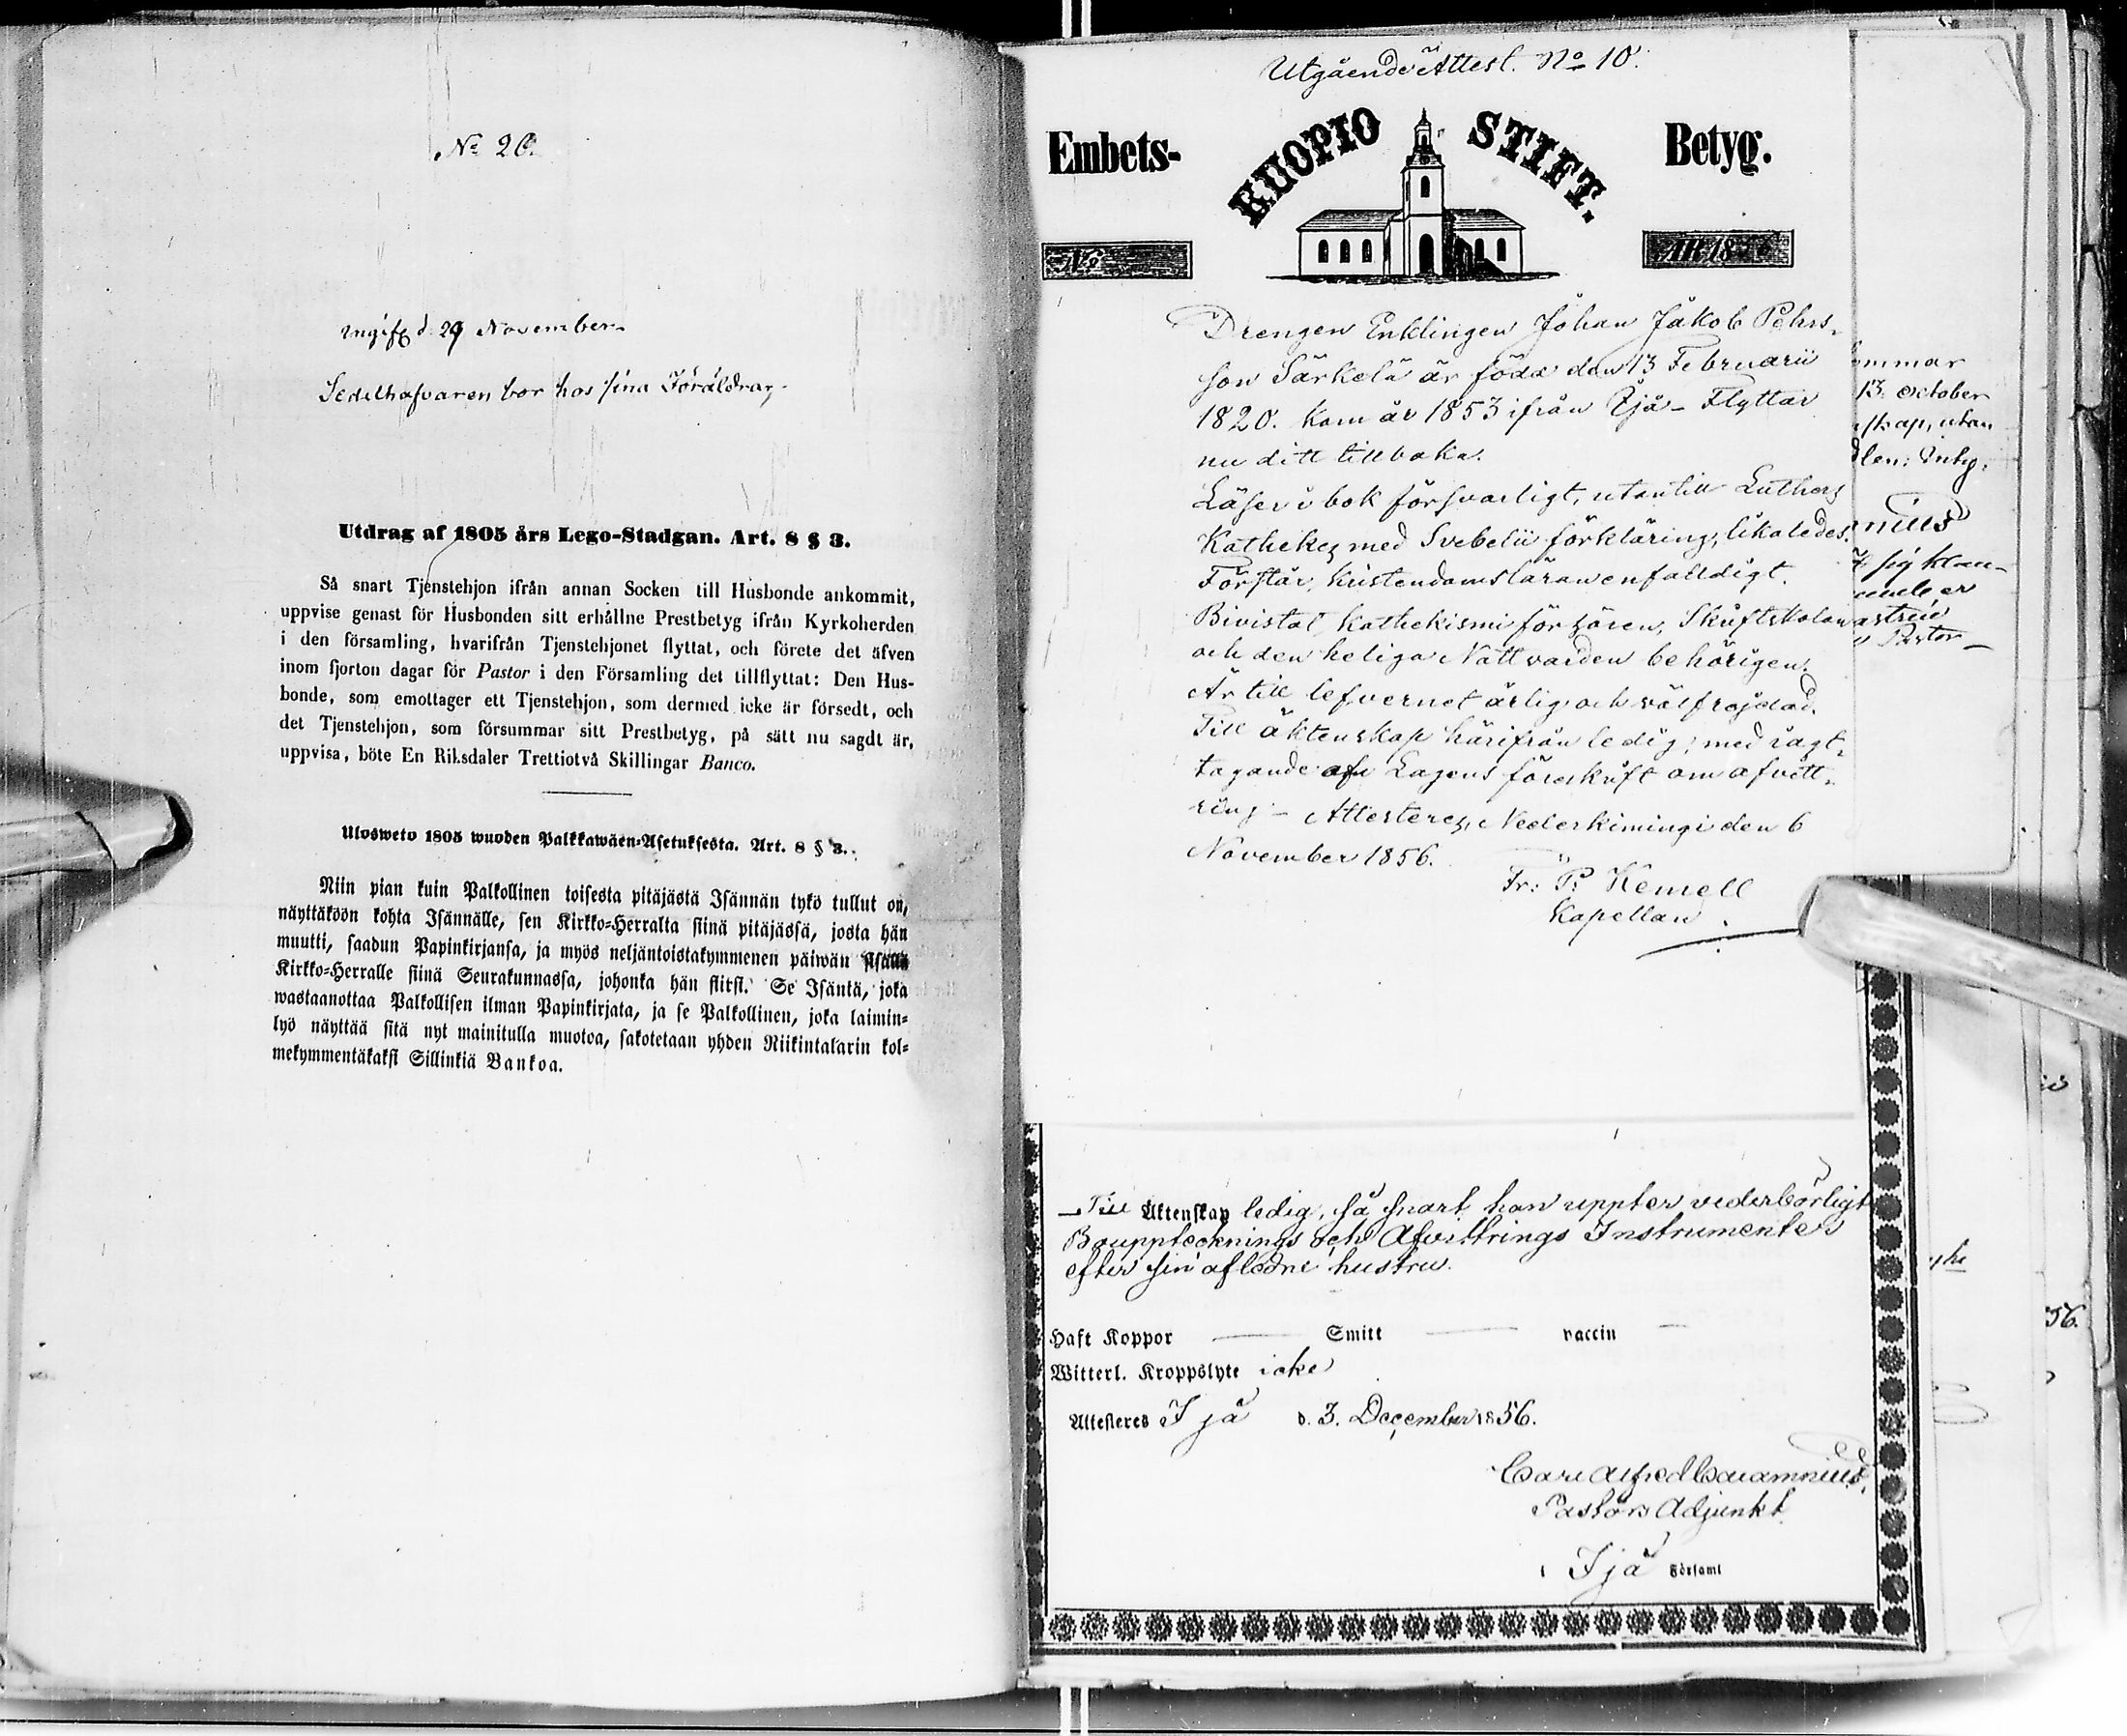 No 20.
Ingifv. d. 29 November
Sedelhafvaren bor hos sina Föräldrar,
Utdrag af 1805 års Lego-Stadgan. Art. 8 § 3.
Så snart Tjenstehjon ifrån annan Socken till Husbonde ankommit,
uppvise genast för Husbonden sitt erhållne Prestbetyg ifrån Kyrkoherden
i den församling, hvarifrån Tjenstehjonet flyttat, och förete det äfven
inom fjorton dagar för Pastor i den Församling det tillflyttat: Den Hus-
bonde, som emottager ett Tjenstehjon, som dermed icke är försedt, och
det Tjenstehjon, som försummar sitt Prestbetyg, på sätt nu sagdt är,
uppvisa, böte En Riksdaler Trettiotvå Skillingar Banco.
Ulosweto 1805 wuoden Palkkawäen-Asetuksesta. Art. 8 § 3.
Niin pian kuin Palkollinen toisesta pitäjästä Isännän tykö tullut on,
näyttäköön kohta Isännälle, sen Kirkko-Herralta siinä pitäjässä, josta hän
muutti, saadun Papinkirjansa, ja myös neljäntoistakymmenen päiwän sisällä
Kirkko-Herralle siinä Seurakunnassa, johonka hän siirsi. Se Isäntä, joka
wastaanottaa Palkollisen ilman Papinkirjata, ja se Palkollinen, joka laimin-
lyö näyttää sitä nyt mainitulla muotoa, sakotetaan yhden Riikintalarin kol-
mekymmentäkaksi Sillinkiä Bankoa.
Utgående Attest. No 10.
Embets- KUOPIO STIFT. Betyg.
No ÅR 18
Drengen Enklingen Johan Jakob Pehrs-
son Särkelä är född den 13 Februarii
1820. Kom år 1853 ifrån Ijå - Flyttar
nu ditt tillbaka.
Läser i bok försvarligt, utantill Luthers
Kathekes med Svebelii förkläring, likaledes.
Förstår kristendomsläran enfalldigt.
Bivistat kathekismi förhören, Skriftskolan
och den heliga Nattvarden behörigen.
Är till lefvernet ärlig och välfrejdad.
Till äktenskap härifrån ledig, med iagt-
tagande af Lagens föreskrift om afvitt-
ring - Attesteres, Nederkimingi den 6
November 1856.
Fr: P: Kemell
Kapellan.
ommar
13. October
skap, utan
nius
Pastor
Till Äktenskap ledig, så snart han uppter vederbörligt
Bouppteknings och Afvittrings Instrumenter
efter sin aflidne hustru.
Haft Koppor — Smitt — vaccin —
Witterl. Kroppslyte icke
Attesteres Ijå d. 3. December 1856.
Carl Alfred Calamnius,
Pastors Adjunkt
i Ijå Församl
56.